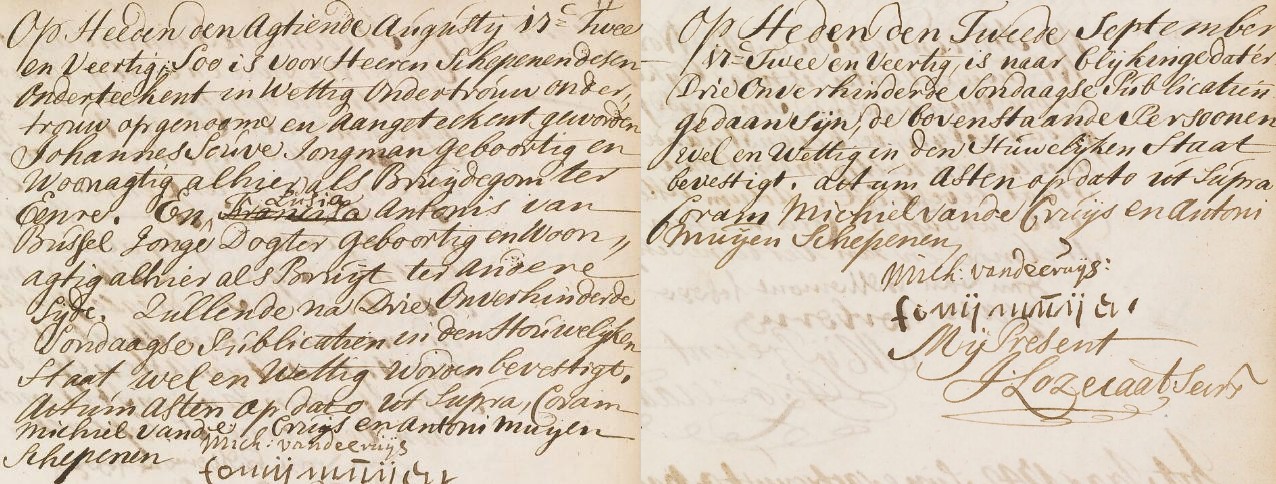 Op Heeden den Agtiende Augusty 17c Twee
en Veertig, Soo is voor Heeren Schepenen desen
Onderteekent in Wettig Ondertrouw onder,
trouw opgenoome en Aangeteekent geworden
Johannes Jongman geboortig en
Woonagtig alhier, als Bruijdegom ter
Eenre. En, Lusia Antonis van
Brussel Jonge Dogter geboortig en Woon,,
agtig alhier als Bruijt ter andere
Syde. Zullende na Drie Onverhinderde
Sondaagse Publicatien in den Houwelyken
Staat wel en Wettig worden bevestigt.
Actum Asten op dato ut Supra, Coram
Michiel vande Cruys en Antoni Muyen
Schepenen
Mich: vandecruijs
Op Heden den Tweede September
17c Twee en Veertig, is naar blykinge dat er
Drie Onverhinderde Sondaagse Publicatien
gedaan Sijn, de bovenstaande Persoonen
Wel en Wettig in den Huwelyken Staat
bevestigt. actum Asten op dato ut Supra
Coram Michiel vande Cruys en Antoni
Muijen Schepenen,
Mich: vandecruijs:
Mij Present
J: Lozecaat Secrs